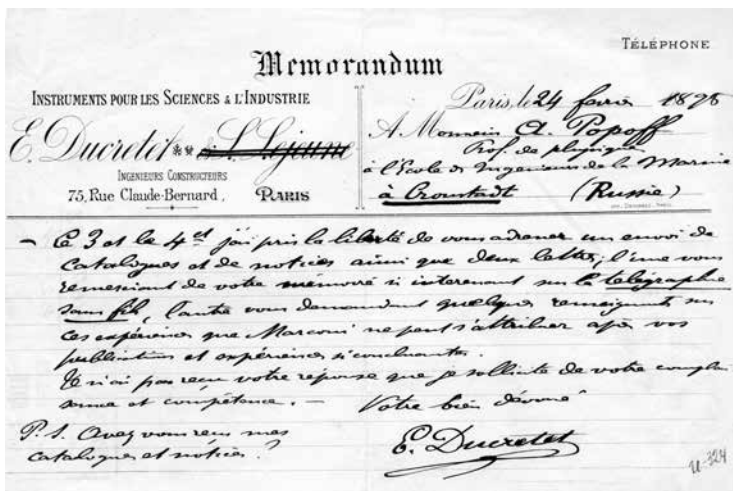 TÉLÉPHONE
Memorandum
INSTRUMENTS POUR LES SCIENCES & L'INDUSTRIE
E. Ducretet ** & L. Lejeune
INGENIEURS CONSTRUCTEURS
75, Rue Claude-Bernard, PARIS
Paris, le 24 février 1898
A Monsieur A. Popoff
Prof. de physique
à l'Ecole des Ingenieurs de la Marine
à Cronstadt (Russie)
- Le 3 et le 4 ct j'ai pris la liberté de vous adresser un envoi de
catalogues et de notices ainsi que deux lettres; l'une vous
remerciant de votre mémoire si interessant sur la télégraphie
sans fil, l'autre vous demandant quelques renseignements sur
ces expériences que Marconi ne peut s'attribuer après vos
publications et expériences si concluantes.
Je n'ai pas reçu votre réponse que je sollicite de votre complai
sance et compétence. — Votre bien dévoué
P.S. Avez vous reçu mes
catalogues et notices ?
E. Ducretet